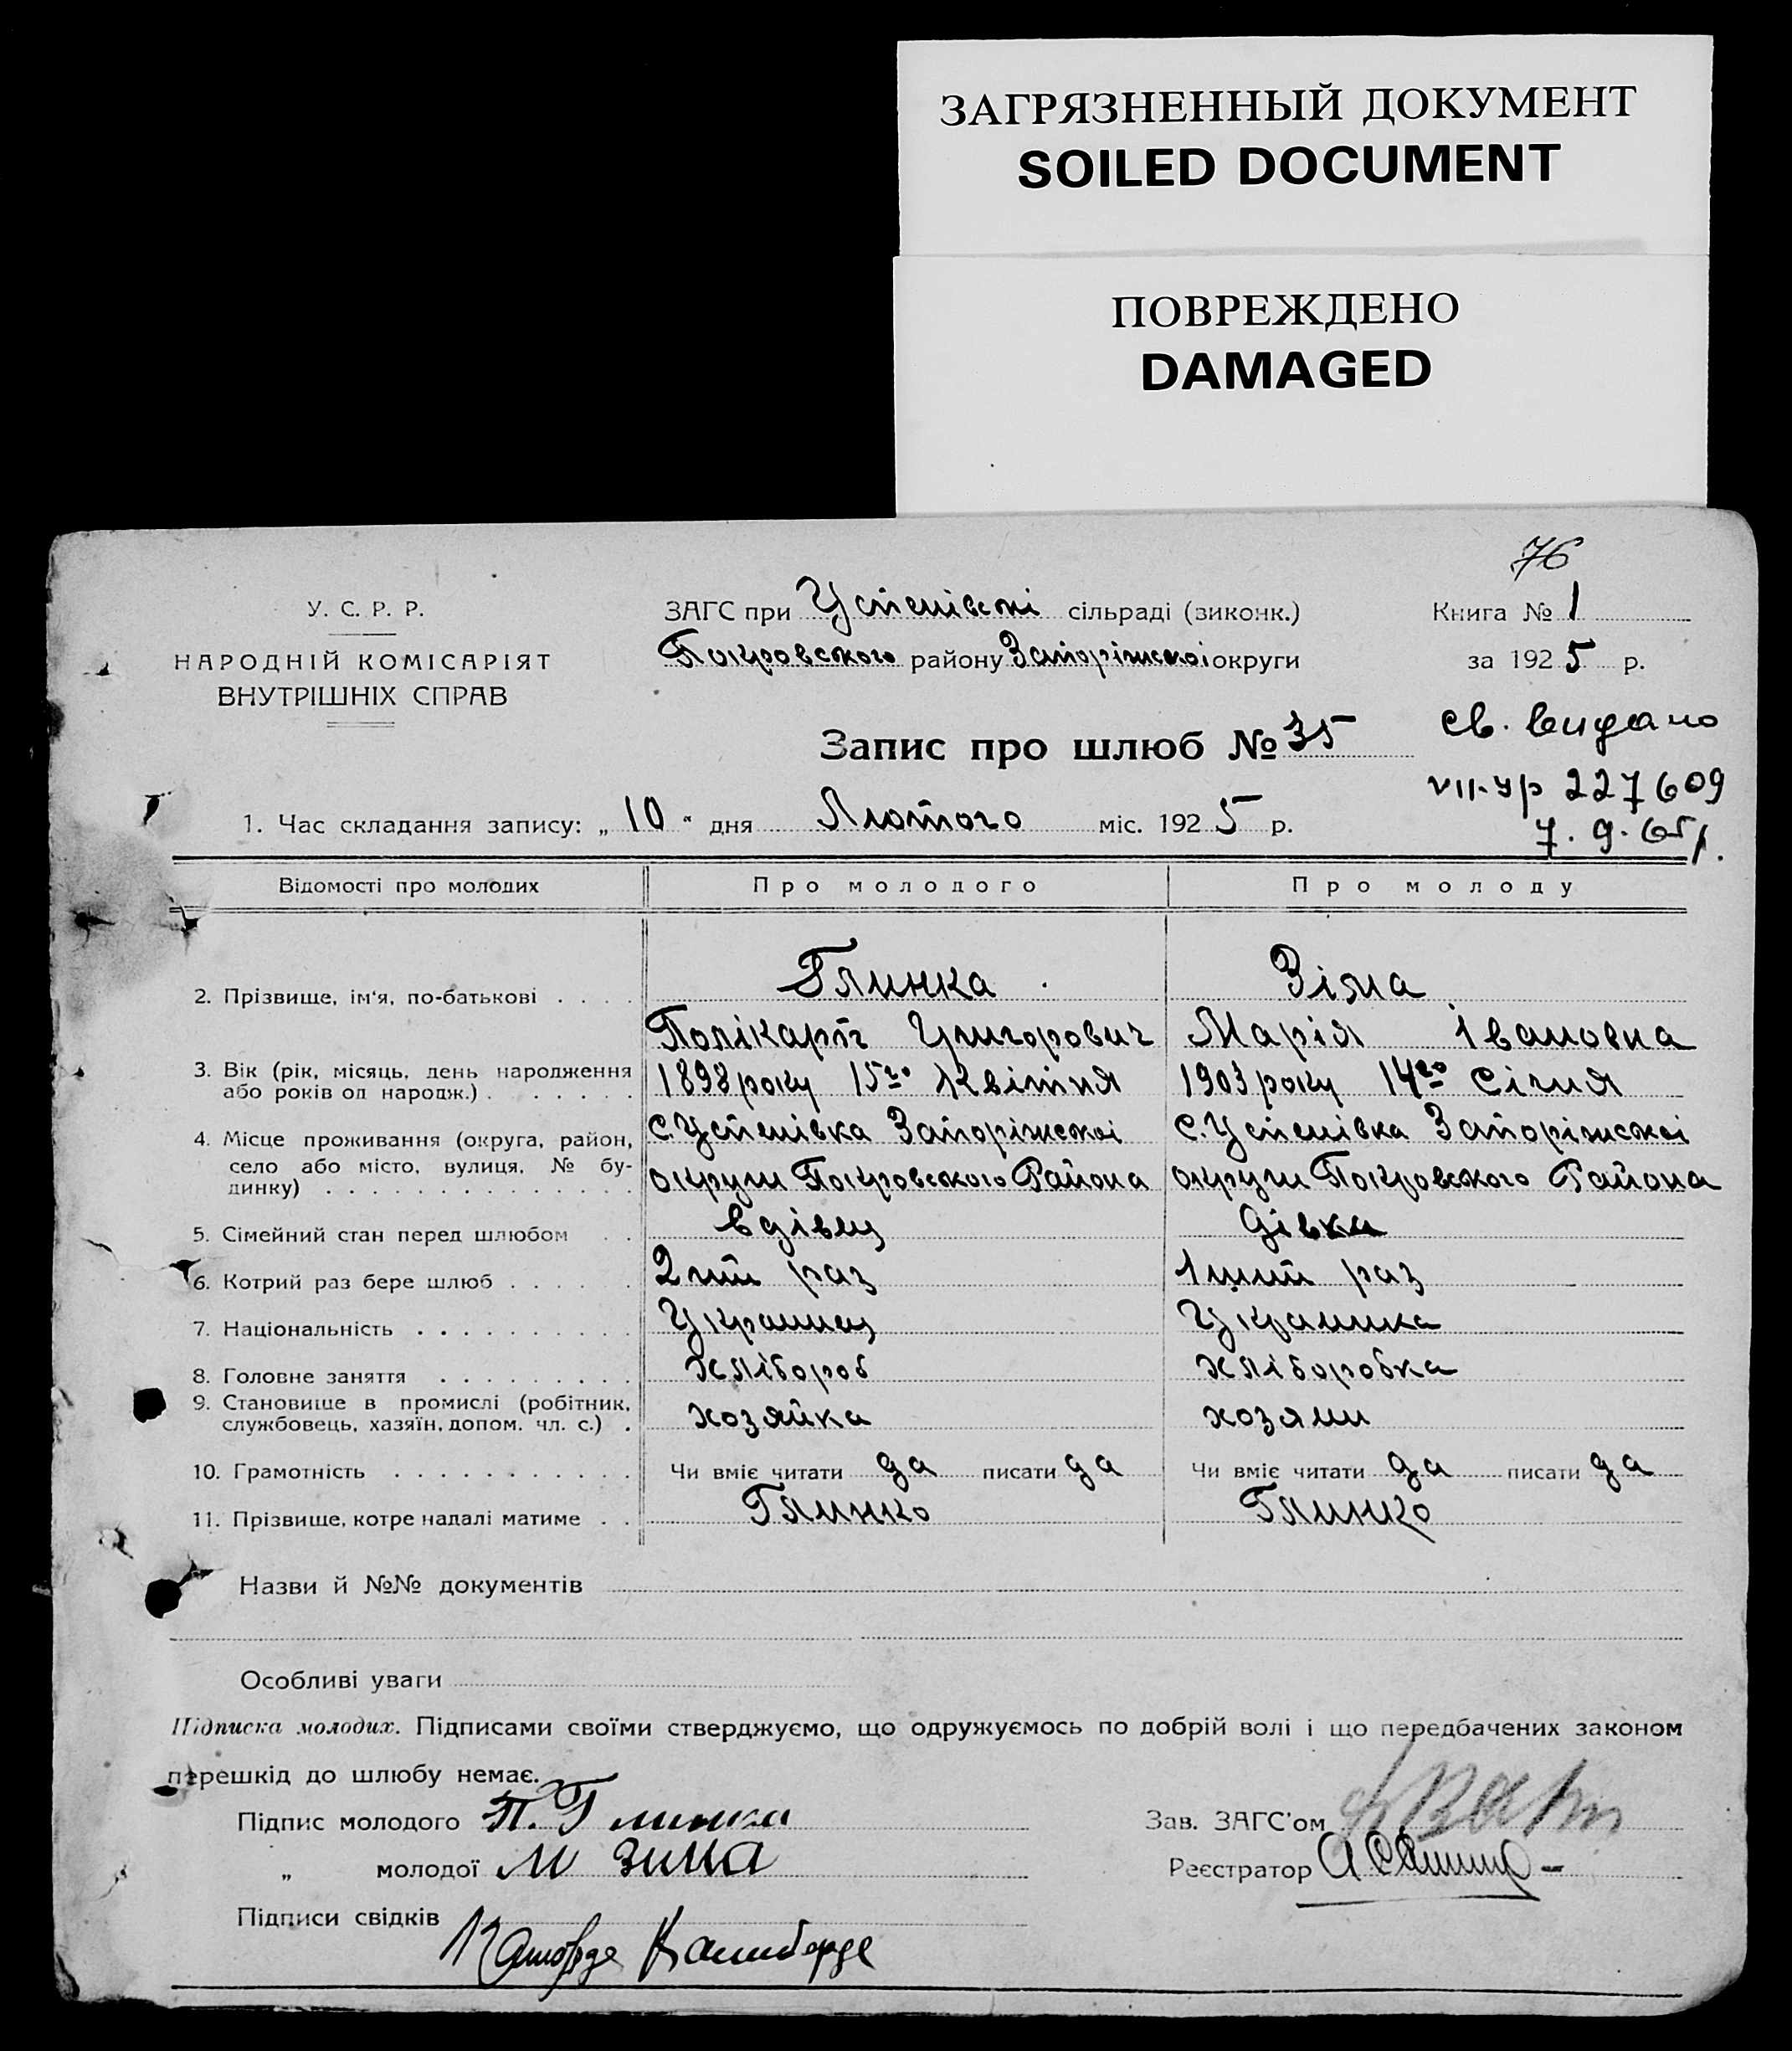 ЗАГРЯЗНЕННЫЙ ДОКУМЕНТ
SOILED DOCUMENT
ПОВРЕЖДЕНО
DAMAGED
76
У. С. Р. Р.
НАРОДНІЙ КОМІСАРІЯТ
ВНУТРІШНІХ СПРАВ
ЗАГС при Успенівскі сільраді (виконк.)
Покровського району Запоріжскоі округи
Книга № 1
за 1925 р.
Запис про шлюб № 35
св. видано
VII-УР 227609
7. 9. 65 р.
1. Час складання запису: „ 10 “ дня Лютого міс. 1925 р.
Відомості про молодих Про молодого Про молоду
2. Прізвище, ім'я, по-батькові . . . . Глинка Зіма
Полікарп Григорович Марія Івановна
3. Вік (рік, місяць, день народження або років од народж.) . . . . . . 1898 року 15го Квітня 1903 року 14го Січня
4. Місце проживання (округа, район, село або місто, вулиця, № будинку) . . . . . . . . . . . . . .
с. Успенівка Запоріжскоі с. Успенівка Запоріжскоі
округи Покровського Района округи Покровського Района
5. Сімейний стан перед шлюбом . . вдівец дівка
6. Котрий раз бере шлюб . . . . . 2гий раз 1ший раз
7. Національність . . . . . . . . . . Украинец Украинка
8. Головне заняття . . . . . . . . . хлібороб хліборобка
9. Становище в промислі (робітник, службовець, хазяїн, допом. чл. с.) . хозяйка хозяин
10. Грамотність . . . . . . . . . . . Чи вміє читати да писати да Чи вміє читати да писати да
11. Прізвище, котре надалі матиме . . Глинко Глинко
Назви й №№ документів
Особливі уваги
Підписка молодих. Підписами своїми стверджуємо, що одружуємось по добрій волі і що передбачених законом
перешкід до шлюбу немає.
Підпис молодого П. Глинка
Зав. ЗАГС'ом
„ молодої М Зима
Реєстратор
Підписи свідків